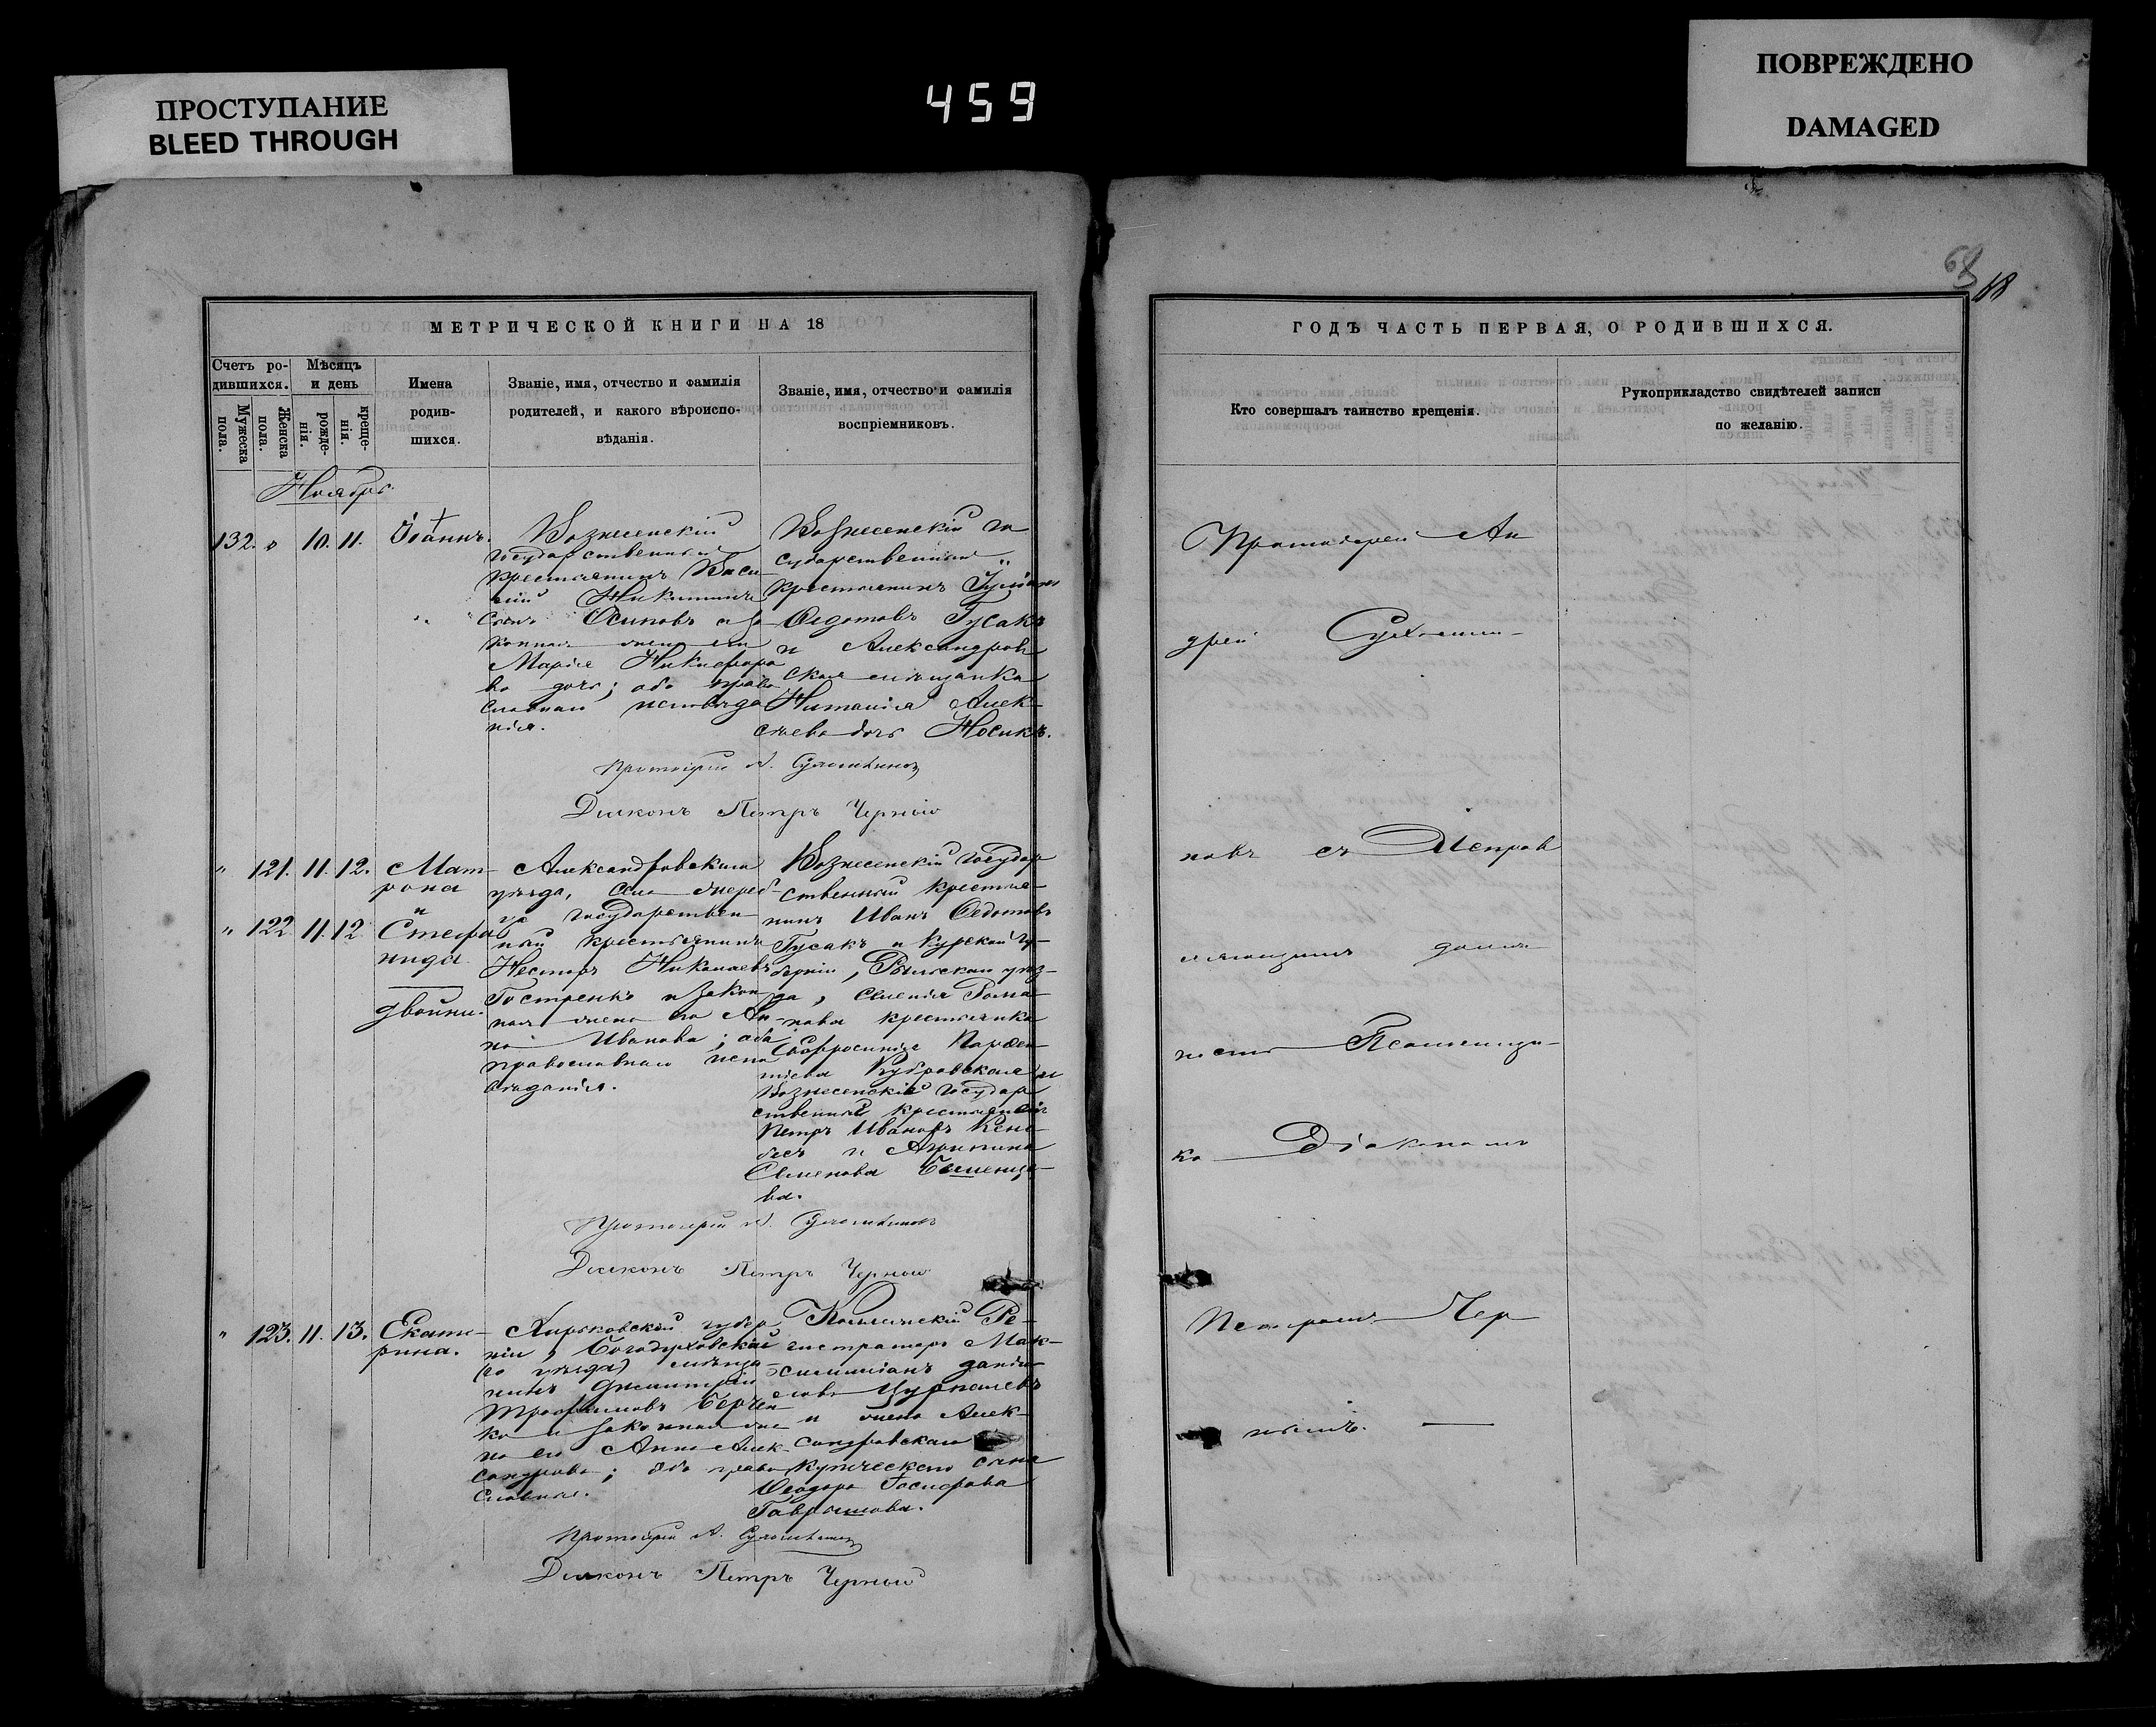 ПРОСТУПАНИЕ
BLEED THROUGH
459
ПОВРЕЖДЕНО
DAMAGED
68
МЕТРИЧЕСКОЙ КНИГИ НА 18
Счетъ ро-
дившихся.
Мужеска
пола.
Женска
пола.
Мѣсяцъ
и день
рожде-
нія.
креще-
нія.
Имена
родив-
шихся.
Званіе, имя, отчество и фамилія
родителей, и какого вѣроиспо-
вѣданія.
Званіе, имя, отчество и фамилія
воспріемниковъ.
Ноябрь.
132. " 10. 11. Іоаннъ.
Вознесенскій
государственный
крестьянинъ Васи-
лій Никитинъ
сынъ Осиповъ и за-
конная жена его
Марія Никифоро
ва дочь; оба право
славнаго исповѣда
нія.
Вознесенскій го
сударственный
крестьянинъ
Ѳедотовъ Гусакъ
и Александров
ская мѣщанка
Алек-
сѣева дочь Носикъ.
Протоіерей А.
Діаконъ Петръ Черный
" 121. 11. 12. Мат-
рона
и
" 122 11. 12 Стефа
нида
двойни.
Александровскаго
уѣзда, села
государствен-
ный крестьянинъ
Несторъ Николаевъ
и закон
ная жена его Ан-
на Иванова; оба
православнаго испо
вѣданія.
Вознесенскій государ
ственный крестья-
нинъ Иванъ Ѳедотовъ
Гусакъ и Курской гу-
берніи, Рыльскаго уѣз-
да, Рома-
нова крестьянка
Вознесенскій государ
ственный крестьянинъ
Петръ Ивановъ
и Агрипина
Семенова
ва.
Протоіерей А.
Діаконъ Петръ Черный
" 123. 11. 13. Екате-
рина.
Харьковской губер
ніи, Богодуховскій
(го уѣзда) мѣща-
нинъ Димитрій
Трофимовъ
ко и законная же
на его Анна Алек-
сандрова; оба право
славные.
Коллежскій Ре-
гистраторъ Мак-
симиліанъ Даніи-
ловъ
и жена Алек-
сандровскаго
купеческаго сына
Ѳеодора
Протоіерей А.
Діаконъ Петръ Черный
ГОДЪ ЧАСТЬ ПЕРВАЯ, О РОДИВШИХСЯ.
Кто совершалъ таинство крещенія.
Рукоприкладство свидѣтелей записи
по желанію.
Протоіерей Ан
дрей
новъ съ Исправ
ляющимъ долж-
ность Псаломщи-
ка Діакономъ
Петромъ Чер
нымъ.